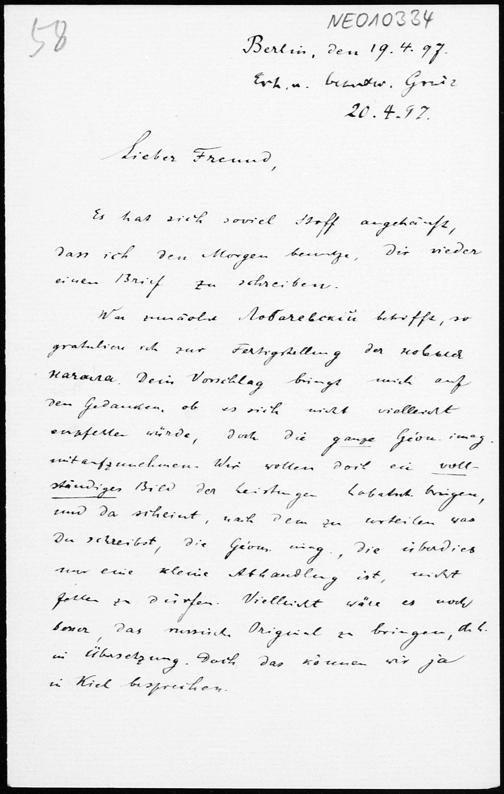 58
NEO10334
Berlin, den 19.4.97.
Erh. u. beantw. Greiz
20.4.97.
Lieber Freund,
Es hat sich soviel Stoff angehäuft,
dass ich den Morgen benutze, Dir wieder
einen Brief zu schreiben.
Was zunächst Лобачевский betrifft, so
gratuliere ich zur Fertigstellung der новыя
начала. Dein Vorschlag bringt mich auf
den Gedanken, ob es sich nicht vielleicht
empfehlen würde, doch die ganze Géom. imag.
mitaufzunehmen. Wir wollen doch ein voll-
ständiges Bild der Leistungen Lobatsch. bringen,
und da scheint, nach dem zu urteilen was
Du schreibst, die Géom. imag., die überdies
nur eine kleine Abhandlung ist, nicht
fehlen zu dürfen. Vielleicht wäre es noch
besser, das russische Original zu bringen, d.h.
in Übersetzung. Doch das können wir ja
in Kiel besprechen.